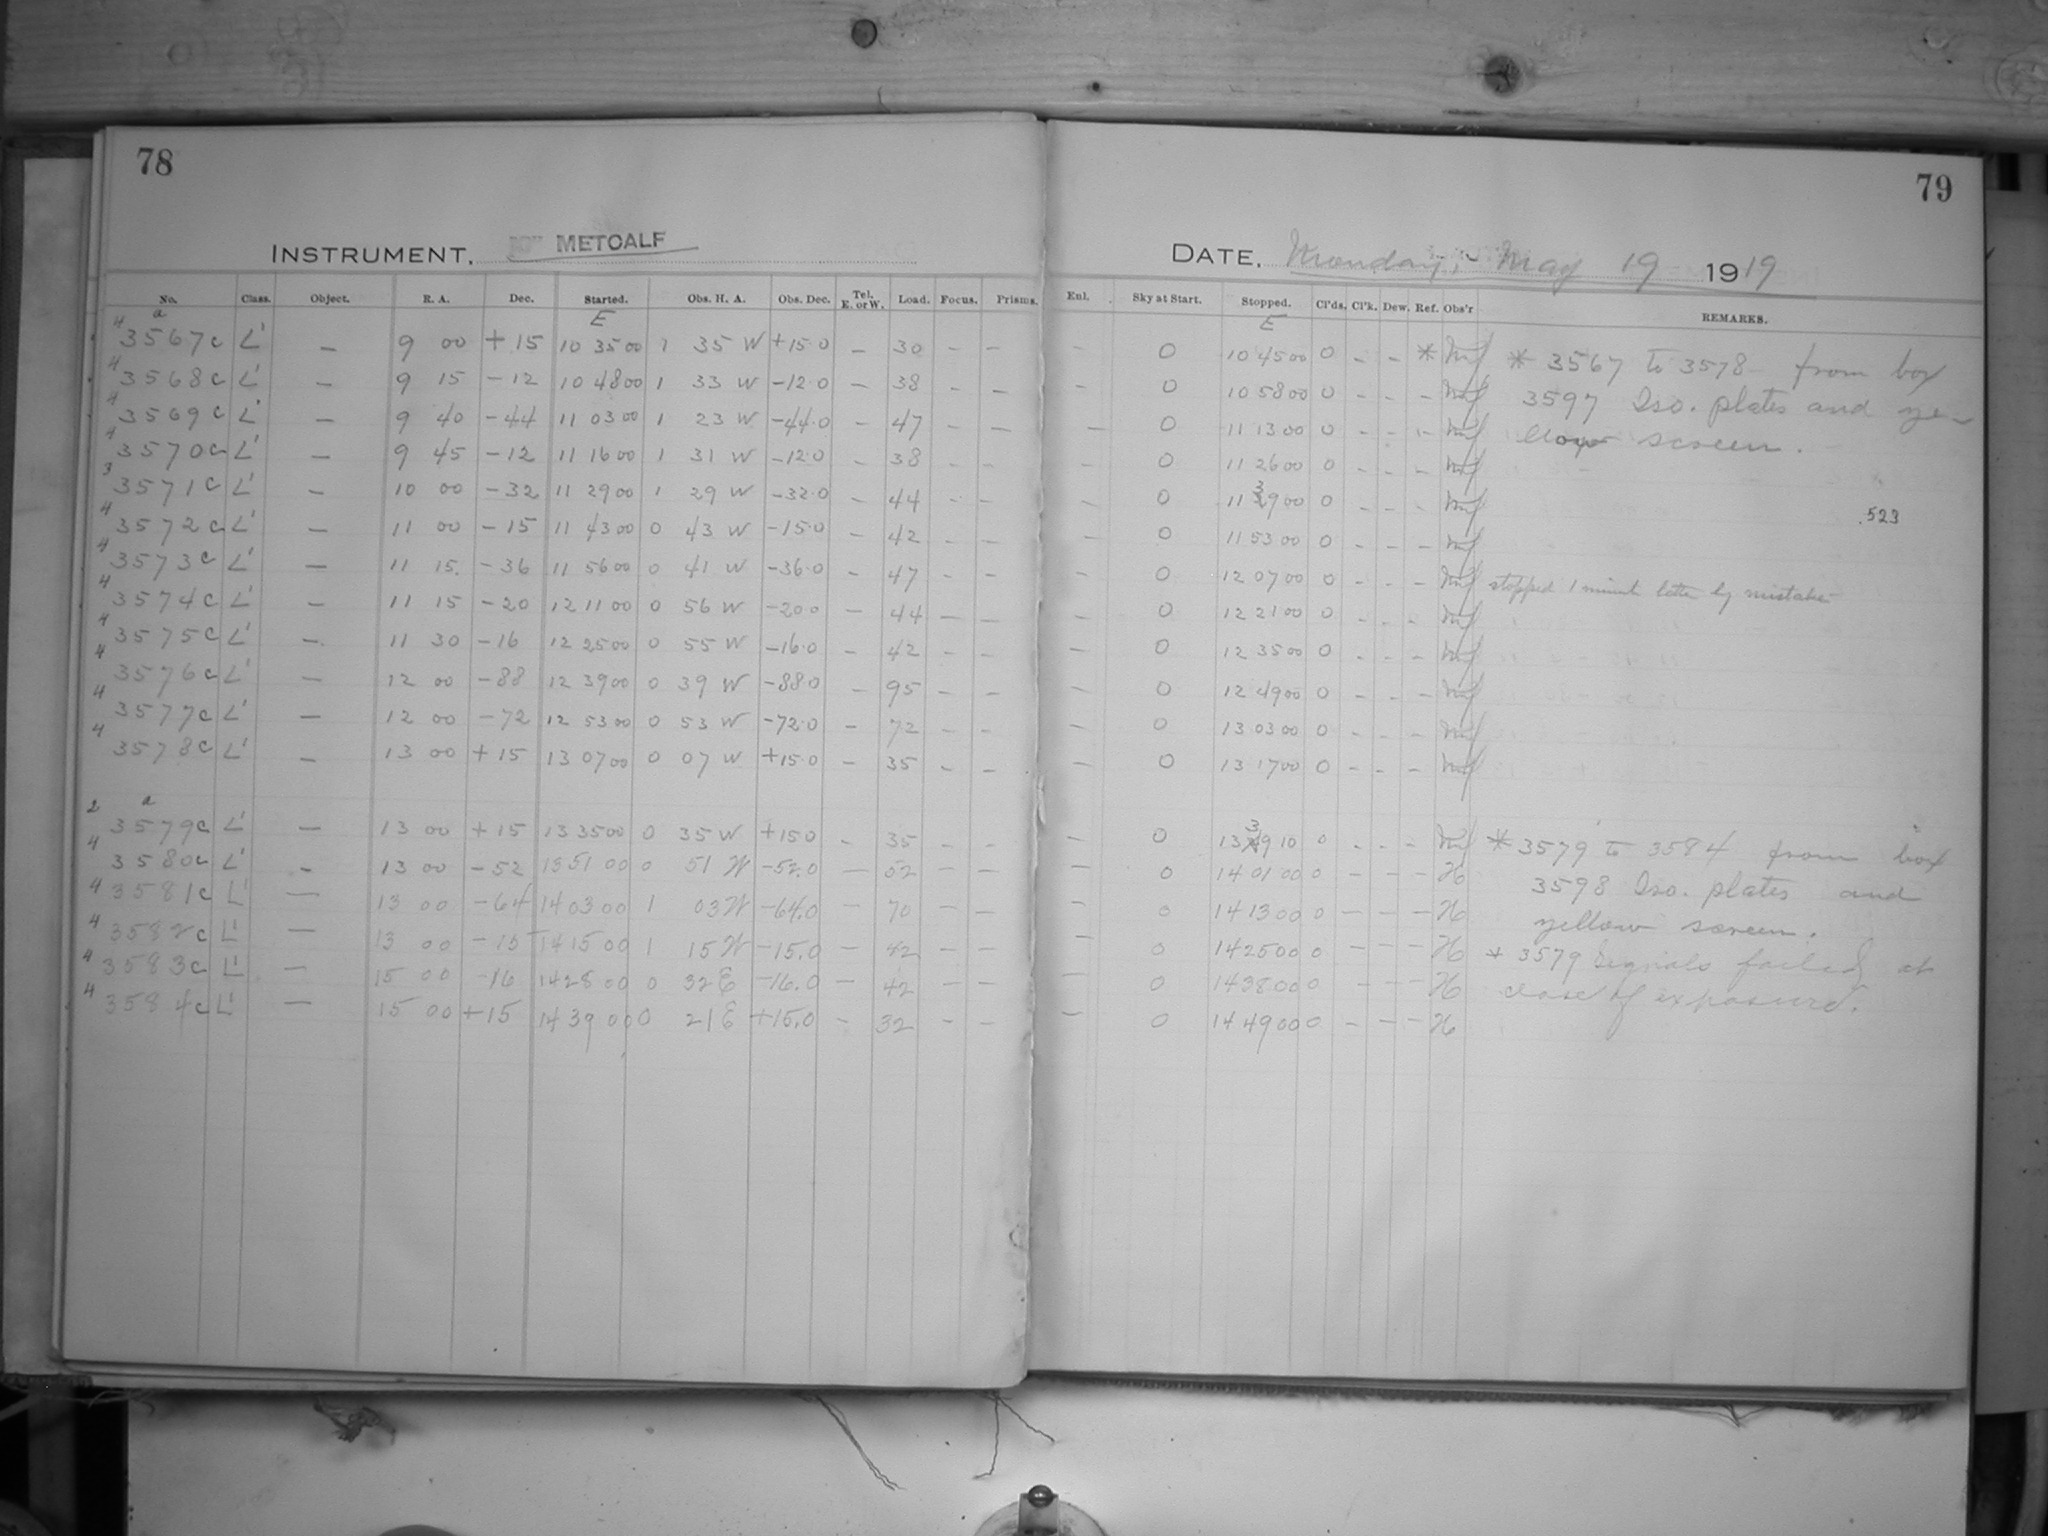 78
INSTRUMENT. 10" METCALF
No. Class. Object. R. A. Dec. Started. Obs. H. A. Obs. Dec. Tel. E. or W. Load. Focus. Prisms.
a E
4 3567c L' — 9 00 +15 10 35 00 1 35 W +15.0 — 30 — —
4 3568c L' — 9 15 -12 10 48 00 1 33 W -12.0 — 38 — —
4 3569c L' — 9 40 -44 11 03 00 1 23 W -44.0 — 47 — —
4 3570c L' — 9 45 -12 11 16 00 1 31 W -12.0 — 38 — —
3 3571c L' — 10 00 -32 11 29 00 1 29 W -32.0 — 44 — —
4 3572c L' — 11 00 -15 11 43 00 0 43 W -15.0 — 42 — —
4 3573c L' — 11 15 -36 11 56 00 0 41 W -36.0 — 47 — —
4 3574c L' — 11 15 -20 12 11 00 0 56 W -20.0 — 44 — —
4 3575c L' — 11 30 -16 12 25 00 0 55 W -16.0 — 42 — —
4 3576c L' — 12 00 -88 12 39 00 0 39 W -88.0 — 95 — —
4 3577c L' — 12 00 -72 12 53 00 0 53 W -72.0 — 72 — —
4 3578c L' — 13 00 +15 13 07 00 0 07 W +15.0 — 35 — —
a
2 3579c L' — 13 00 +15 13 35 00 0 35 W +15.0 — 35 — —
4 3580c L' — 13 00 -52 13 51 00 0 51 W -52.0 — 52 — —
4 3581c L' — 13 00 -64 14 03 00 1 03 W -64.0 — 70 — —
4 3582c L' — 13 00 -15 14 15 00 1 15 W -15.0 — 42 — —
4 3583c L' — 15 00 -16 14 28 00 0 32 E -16.0 — 42 — —
4 3584c L' — 15 00 +15 14 39 00 0 21 E +15.0 — 32 — —
79
DATE. Monday, May 19 1919
Enl. Sky at Start. Stopped. Cl'ds. Cl'k. Dew. Ref. Obs'r REMARKS.
E
— 0 10 45 00 0 — — * * 3567 to 3578 from box
— 0 10 58 00 0 — — — 3597 Iso. plates and ye-
— 0 11 13 00 0 — — — llow screen.
— 0 11 26 00 0 — — —
— 0 11 39 00 0 — — —
.523
— 0 11 53 00 0 — — —
— 0 12 07 00 0 — — — stopped 1 minute later by mistake
— 0 12 21 00 0 — — —
— 0 12 35 00 0 — — —
— 0 12 49 00 0 — — —
— 0 13 03 00 0 — — —
— 0 13 17 00 0 — — —
— 0 13 39 10 0 — — — * 3579 to 3584 from box
— 0 14 01 00 0 — — — H 3598 Iso. plates and
— 0 14 13 00 0 — — — H yellow screen.
— 0 14 25 00 0 — — — H * 3579 Signals failed at
— 0 14 38 00 0 — — — H close of exposure.
— 0 14 49 00 0 — — — H